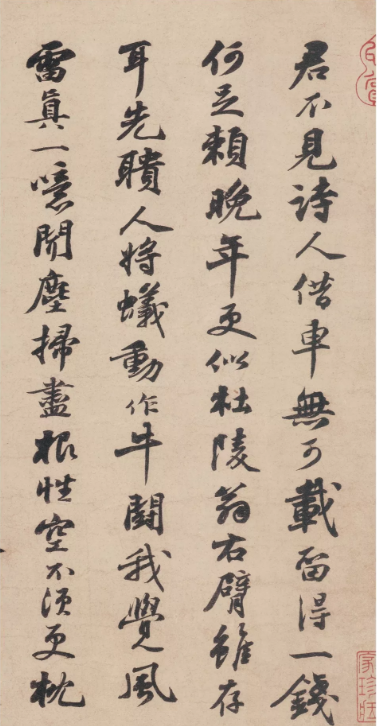 君不見詩人借車無可載留得一錢
何足賴晚年更似杜陵翁右臂雖存
耳先聵人將蟻動作牛鬪我覺風
雷眞一噫聞塵掃盡根性空不須更枕